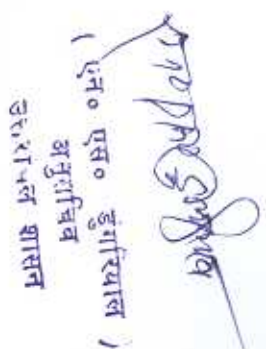 ( एन० एस० डुंगरियाल )
अनुसचिव
उत्तरांचल शासन